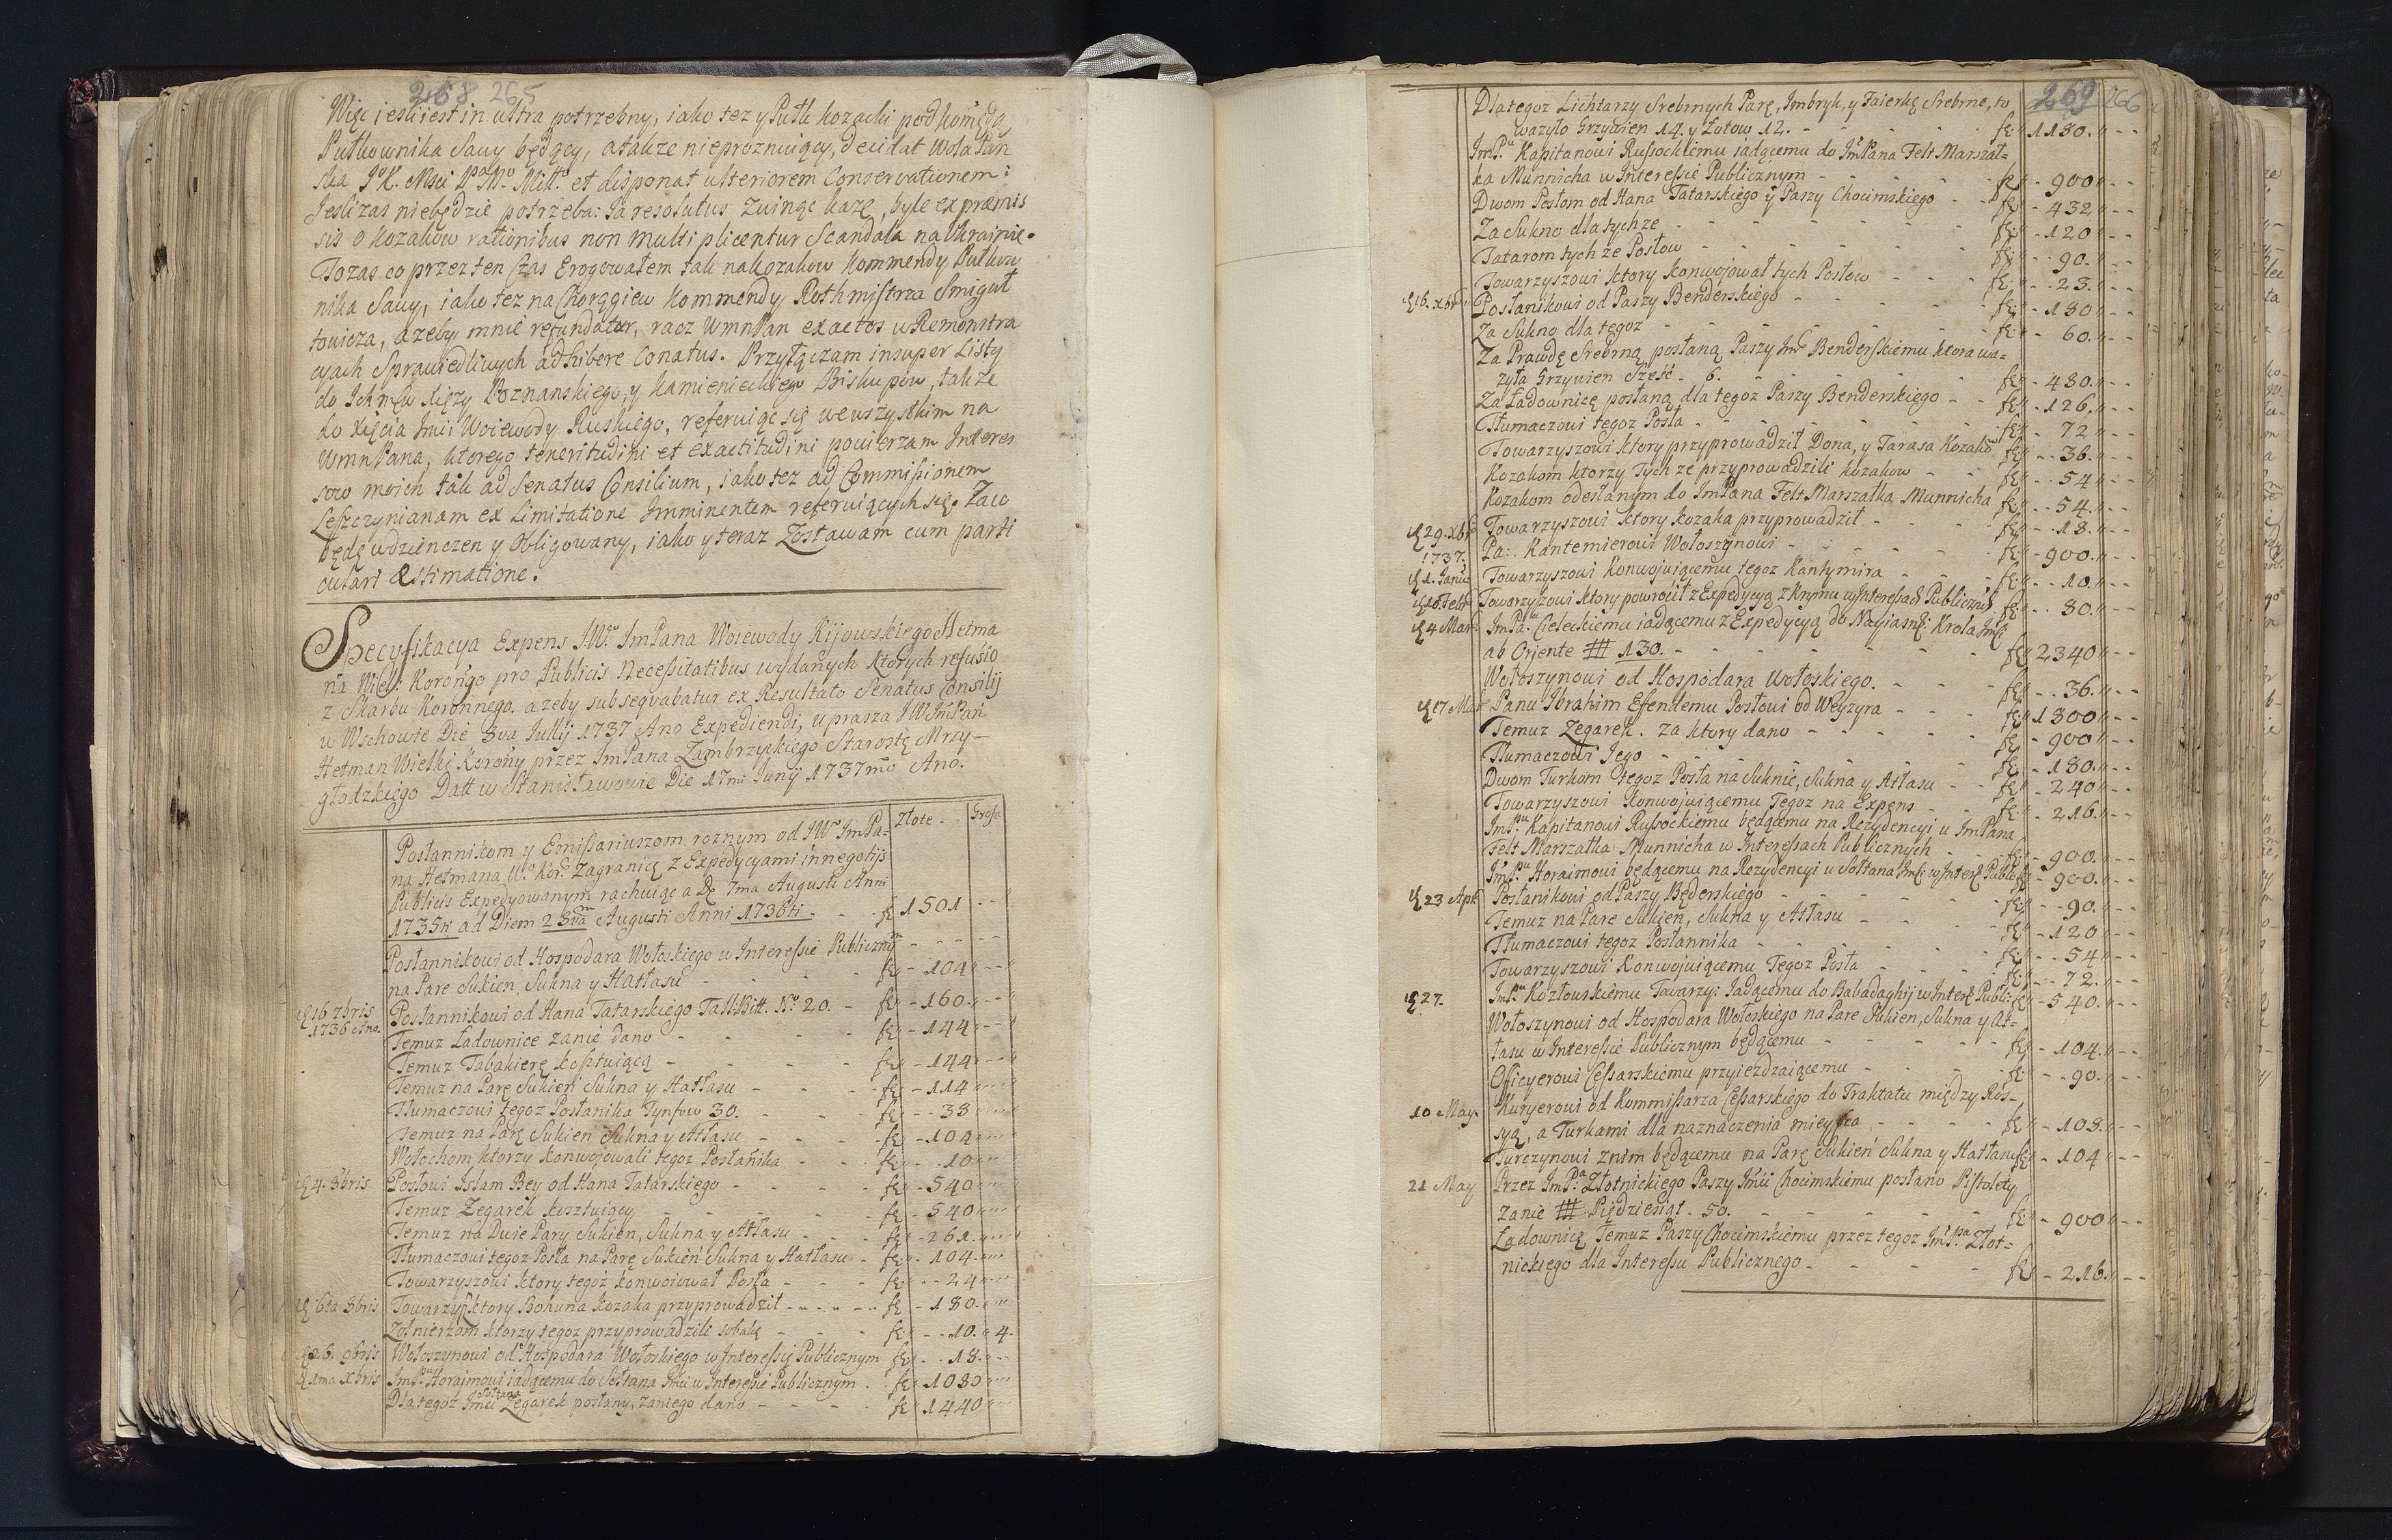 268 265
Więc iesli iest in ultra potrzebny, iako tez y Pułk kozacki pod komędą
Pułkownika Sawy będący, a także nieprozniuiący, decidat Wola Pań
ska J. K. Msci et disponat ulteriorem Conservationem:
Jesli zas niebędzie potrzeba: Ja resolutus zwinąc każę, byle ex præmis
sis o Kozakow rationibus non multiplicentur Scandala na Ukrainie.
To zas co przez ten czas Erogowałem tak na kozakow Kommendy Pułkow
nika Sawy, iako tez na Chorągiew Kommendy Rothmistrza Smiguł
towicza, azeby mnie refundatur, racz WmnPan exactos w Remonstra
cyach Sprawiedliwych adhibere Conatus. Przyłączam insuper Listy
do Ichmciow Xięzy Poznanskiego, y Kamienieckiego Biskupow, takze
do Xięcia Jmci Woiewody Ruskiego, referuiąc się we wszystkim na
WmnPana, ktorego teneritudini et exactitudini powierzam Interes
sow moich tak ad Senatus Consilium, iako tez ad Commissionem
Leszczynianam ex Limitatione Imminentem referuiących się. Za co
będę wdzienczen y Obligowany, iako y teraz Zostawam cum parti
culari Æstimatione.
Specyfikacya Expens JW. ImPana Woiewody Kijowskiego Hetma
na Wiel: Korongo pro Publicis Necessitatibus wydanych ktorych refusio
z Skarbu Koronnego. azeby subseqvabatur ex Resultato Senatus Consilij
w Wschowie Die 8va Julij 1737 Ano Expediendi, uprasza JWImPan
Hetman Wielki Korony przez ImPana Zambrzyckiego Starostę Mrzy-
głodzkiego Datt w Stanisławowie Die 17ma Junij 1737mo Ano.
Złote Grosze
Posłannikom y Emissariuszom roznym od JW ImPa-
na Hetmana W. Kor. Zagranicę z Expedycyami in negotijs
Publicis Expedyowanym rachuiąc a De 7ma Augusti Anni
1735ti ad Diem 28va Augusti Anni 1736ti. - 1501 - -
Posłannikowi od Hospodara Wołoskiego w Interessie Publicznym
na Pare Sukien Sukna y Hatłasu - 104 - -
16 7bris 1736 Ano. Posłannikowi od Hana Tatarskiego Tall: Bitt. No. 20. - 160
Temuz Ładownice zanie dano - 144
Temuz Tabakierę kosztuiącą - 144
Temuz na Parę Sukien Sukna y Hatłasu - 114
Tłumaczowi tegoz Posłanika Tynfow 30. - 38
Temuz na Parę Sukien Sukna y Atłasu - 104
Wołochom ktorzy konwojowali tegoz Posłanika - 10
4. 8bris Posłowi Islam Bey od Hana Tatarskiego - 540
Temuz Zegarek kosztuiący - 540
Temuz na Dwie Pary Sukien, Sukna y Atłasu - 261
Tłumaczowi tegoz Posła na Parę Sukien Sukna y Hatłasu - 104
Towarzyszowi ktory tegoz konwoiował Posła - 24
6ta 8bris Towarzysz ktory Bohuna kozaka przyprowadził - 180
Zołnierzom ktorzy tegoz przyprowadzili sobakę - 10 4.
26. 9bris Wołoszynowi od Hospodara Wołoskiego w Interessij Publicznym - 18
1ma Xbris ImP. Horaimowi iadącemu do Sołtana Jmci w Interesie Publicznym - 1080
Dla tegoz Jmci Sołtana Zegarek posłany, zaniego dano - 1440
269 266
Dlategoz Lichtarzy Srebrnych Parę, Imbryk, y Faierkę Srebrne, to
wazyło Grzywien 14. y Łotow 12. - 1180
ImP. Kapitanowi Russockiemu iadącemu do ImPana Felt Marszał-
ka Munnicha w Interessie Publicznym - 900
Dwom Posłom od Hana Tatarskiego y Paszy Chocimskiego - 432
Za Sukno dla tychze - 120
Tatarom tych ze Posłow - 90
Towarzyszowi ktory konwojował tych Posłow - 23
16. xbr: Posłanikowi od Paszy Benderskiego - 180
Za Sukno dla tegoz - 60
Za Prawdę Srebrną posłaną Paszy Jmc Benderskiemu ktora wa-
zyła Grzywien Sześć. 6. - 480
Za Ładownicę posłaną dla tegoz Paszy Benderskiego - 126
Tłumaczowi tegoz Posła - 72
Towarzyszowi ktory przyprowadził Dona, y Tarasa Kozakow - 36
Kozakom ktorzy Tych ze przyprowadzili kozakow - 54
Kozakom odesłanym do ImPana Felt Marszałka Munnicha - 54
29. xbr Towarzyszowi ktory kozaka przyprowadził - 18
1737. Pa: Kantemierowi Wołoszynowi - 900
1. Janu Towarzyszowi Konwojuiącemu tegoz Kantymira - 10
10. Febr Towarzyszowi ktory powrocił z Expedycyą z Krymu w Interesach Publicznych - 80
4 Mar: ImPa. Cieleckiemu iadącemu z Expedycyą do Nayiasn: Krola Jmci
ab Oriente # 130. - 2340
Wołoszynowi od Hospodara wołoskiego. - 36
17 Mar Panu Ibrahim Efendemu Posłowi od Wezyra - 1800
Temuz Zegarek. za ktory dano - 900
Tłumaczowi Jego - 180
Dwom Turkom tegoz Posła na Suknie, Sukna y Atłasu - 240
Towarzyszowi Konwojuiącemu Tegoz na Expens - 216
ImP. Kapitanowi Russockiemu będącemu na Rezydencyi u ImPana
Felt Marszałka Munnicha w Interessach Publicznych - 900.
ImP. Horaimowi będącemu na Rezydencyi u Sołtana Jmci w Inter: Publi: - 900.
23 Apr Posłanikowi od Paszy Będerskiego - 90
Temuz na Pare Sukien, Sukna y Atłasu - 120
Tłumaczowi tegoz Posłannika - 54
Towarzyszowi Konwojuiącemu Tegoz Posła - 72.
27. ImP. Kozłowskiemu Towarzy: Jadącemu do Babadaghij w Inter: Publi: - 540.
Wołoszynowi od Hospodara Wołoskiego na Pare Sukien, Sukna y At-
łasu w Interessie Publicznym będącemu - 104.
Officyerowi Cessarskiemu przyiezdzaiącemu - 90.
10 May. Kuryerowi od Kommissarza Cessarskiego do Traktatu między Ros-
syą, a Turkami dla naznaczenia mieysca - 108.
Turczynowi znim będącemu na Parę Sukien Sukna y Hatłasu - 104
21 May Przez ImPa. Złotnickiego Paszy Jmci Chocimskiemu posłano Pistolety
zanie # Pięдziesiąt. 50. - 900
Ładownicę Temuz Paszy Chocimskiemu przez tegoz ImPa. Złot-
nickiego dla Interessu Publicznego - 216.